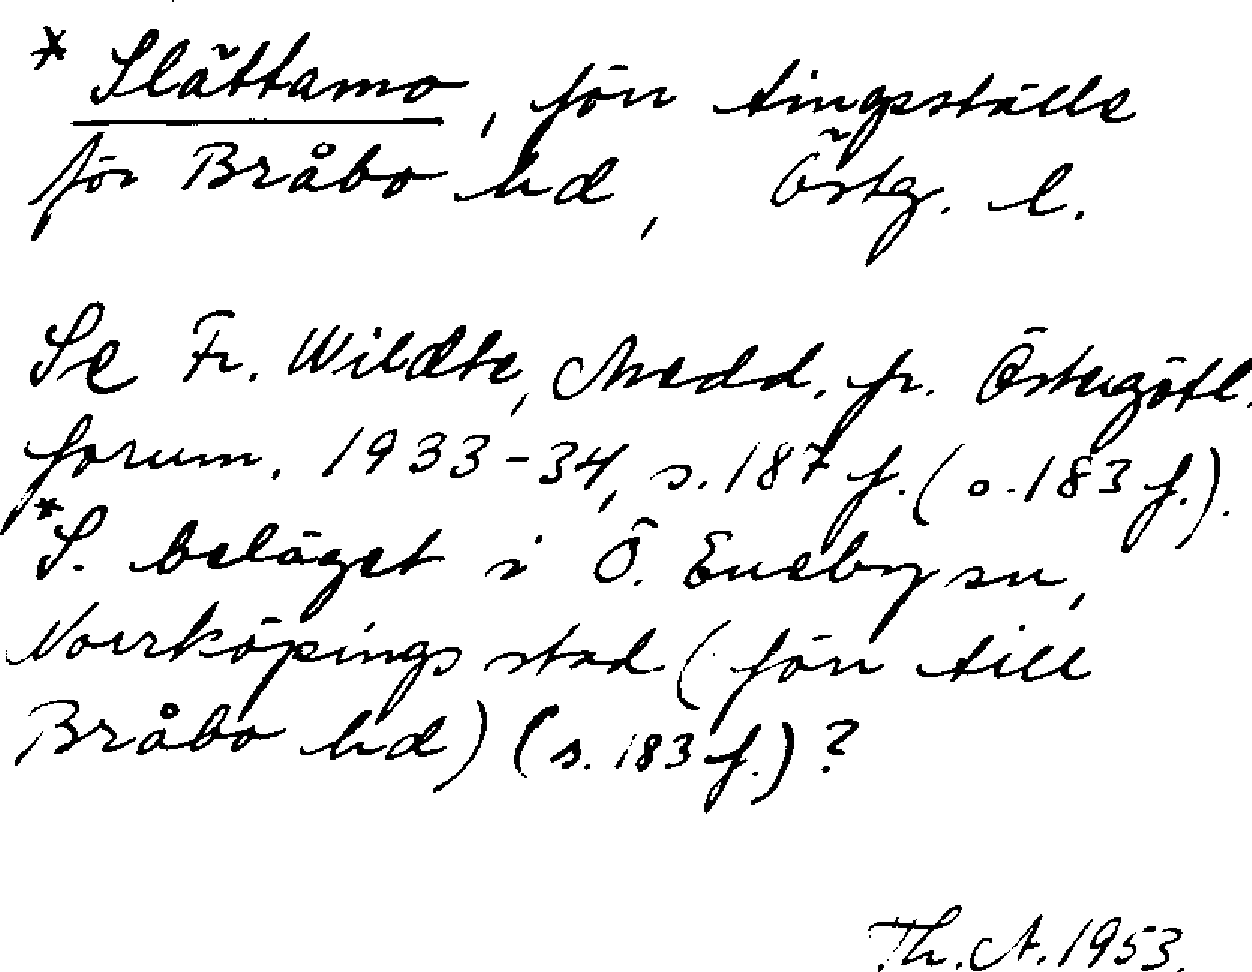 * Slättamo, förr tingsställe
för Bråbo hd, Östg. l.
Se Fr. Wildte, Medd. fr. Östergötl.
fornm. 1933-34, s. 187 f. (o. 183 f.).
*S. beläget i Ö. Eneby sn,
Norrköpings stad (förr till
Bråbo hd) (s. 183 f.)?
Th. A. 1953.